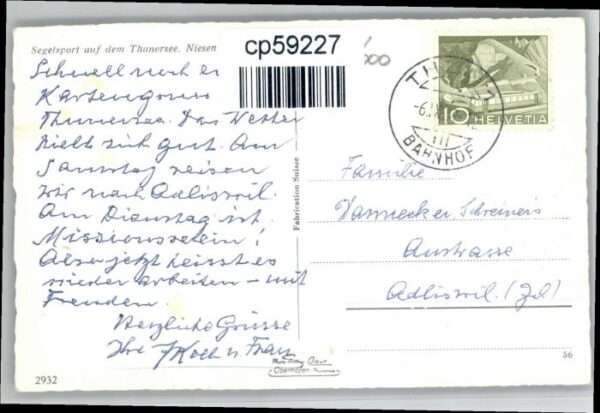 Segelsport auf dem Thunersee. Niesen
cp59227
Schnell noch
Kartengruss
Thunersee. Das Wetter
hielt sich gut. Am
Samstag reisen
wir nach Adliswil.
Am Dienstag ist
Missionsverein!
Aber jetzt heisst es
wieder arbeiten - mit
Freuden.
Herzliche Grüsse
Ihre J Koch u. Frau
2932
Fabrication Suisse
THUN
BAHNHOF
10 HELVETIA
Familie
Dannecker, Schreiner's
Austrasse
Adliswil. (Zch)
56